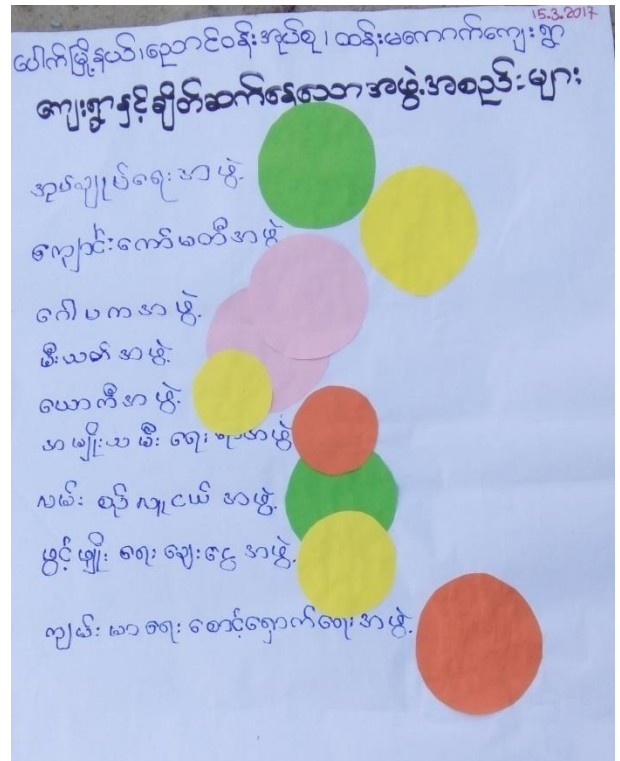 15.3.2017
ပေါက်မြို့နယ်၊ညောင်ဝန်းအုပ်စု၊ထန်းမကောက်ကျေးရွာ
ကျေးရွာနှင့်ချိတ်ဆက်နေသောအဖွဲ့အစည်းများ
အုပ်ချုပ်ရေးအဖွဲ့
ကျောင်းကော်မတီအဖွဲ့
ဂေါပကအဖွဲ့
မီးသတ်အဖွဲ့
ယောကီအဖွဲ့
အမျိုးသမီးရေးရာအဖွဲ့
လမ်းစဉ်လူငယ်အဖွဲ့
ဖွင့်ဖြိုးရေးချေးငွေအဖွဲ့
ကျန်းမာရေးစောင့်ရှောက်ရေးအဖွဲ့